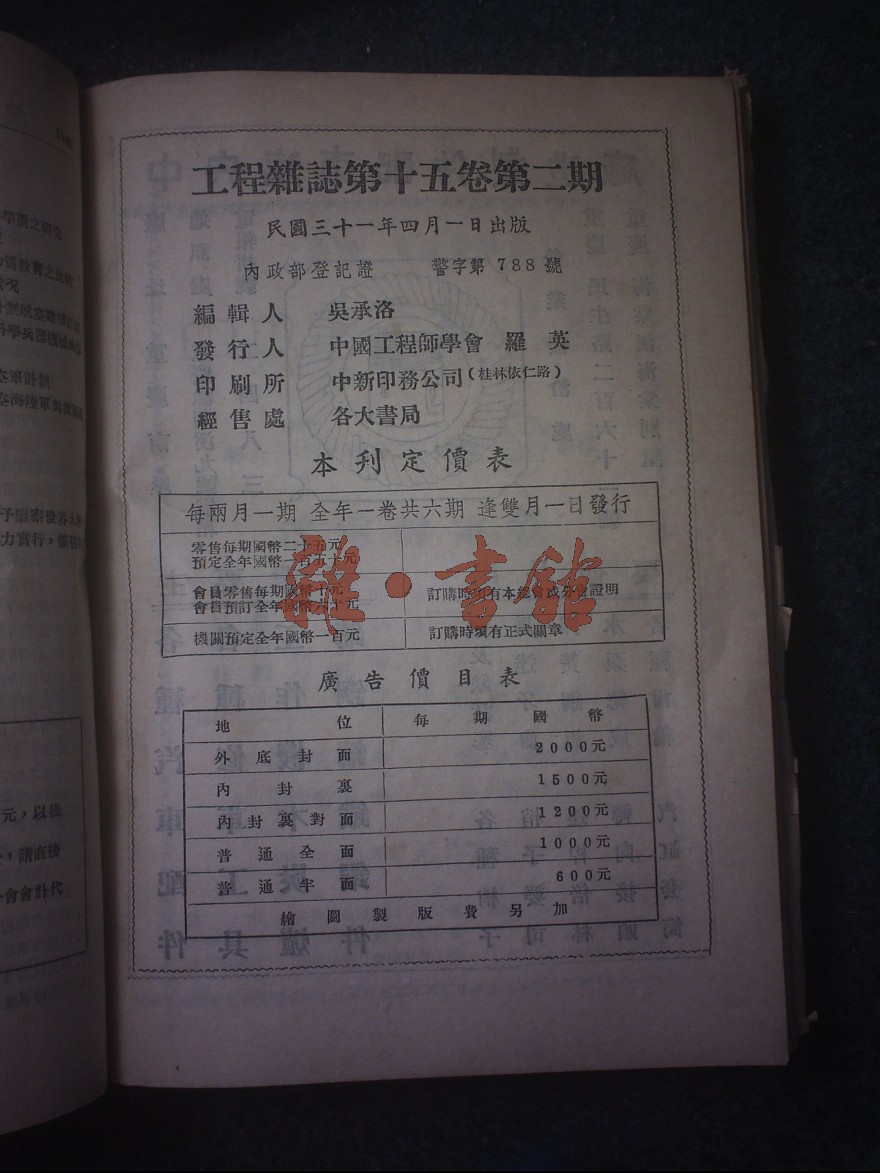 工程雜誌第十五卷第二期
民國三十一年四月一日出版
內政部登記證 警字第 788 號
編輯人 吳承洛
發行人 中國工程師學會 羅英
印刷所 中新印務公司(桂林依仁路)
經售處 各大書局
本刊定價表
每兩月一期 全年一卷共六期 逢雙月一日發行
零售每期國幣二十五元
預定全年國幣一百五十元
會員零售每期國幣十元
會員預訂全年國幣六十元
訂購時須有本總會或分會證明
機關預定全年國幣一百元 訂購時須有正式關章
雜·書館
廣告價目表
地位 每期國幣
外底封面 2000元
內封裏 1500元
內封裏對面 1200元
普通全面 1000元
普通半面 600元
繪圖製版費另加
元，以後
，請直接
會會計代